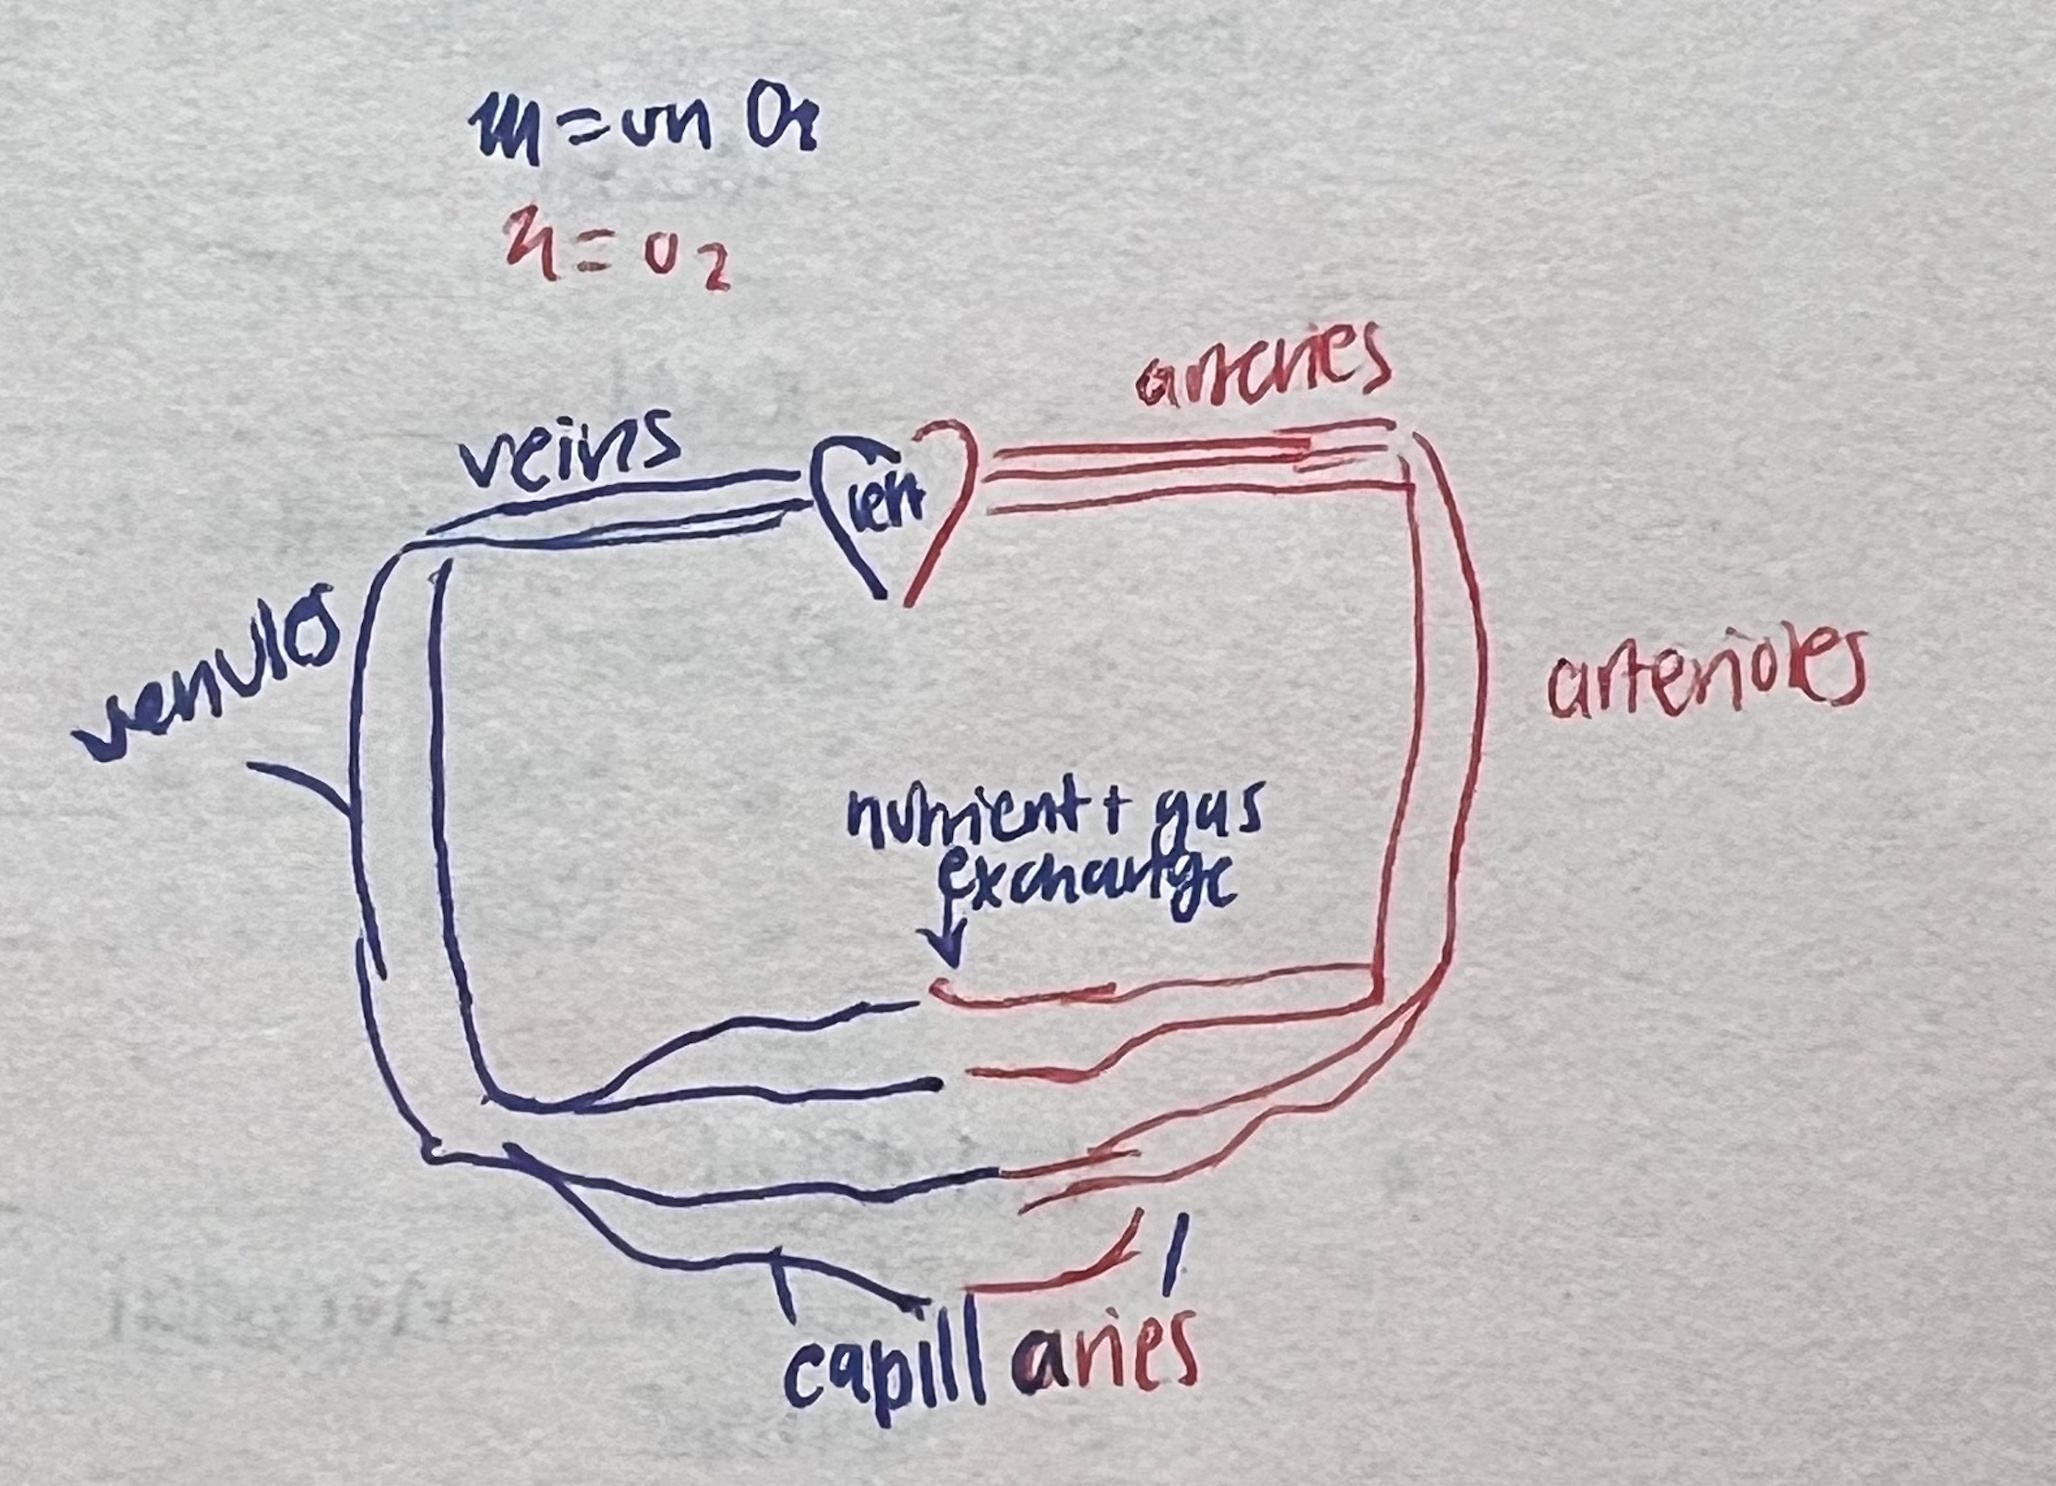 = un O2
= O2
arteries
veins
venules
arterioles
nutrient + gas
exchange
capillaries